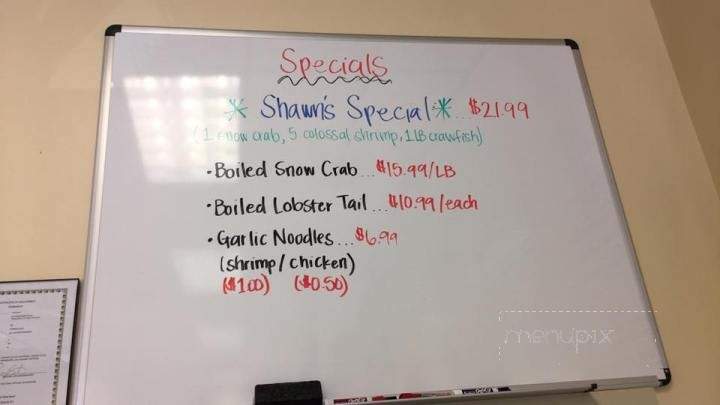 Specials
* Shawn's Special * ... $21.99
(1 snow crab, 5 colossal shrimp, 1 LB crawfish)
• Boiled Snow Crab ... $15.99/LB
• Boiled Lobster Tail ... $10.99/each
• Garlic Noodles ... $6.99
(shrimp/chicken)
($1.00) ($0.50)
menupix